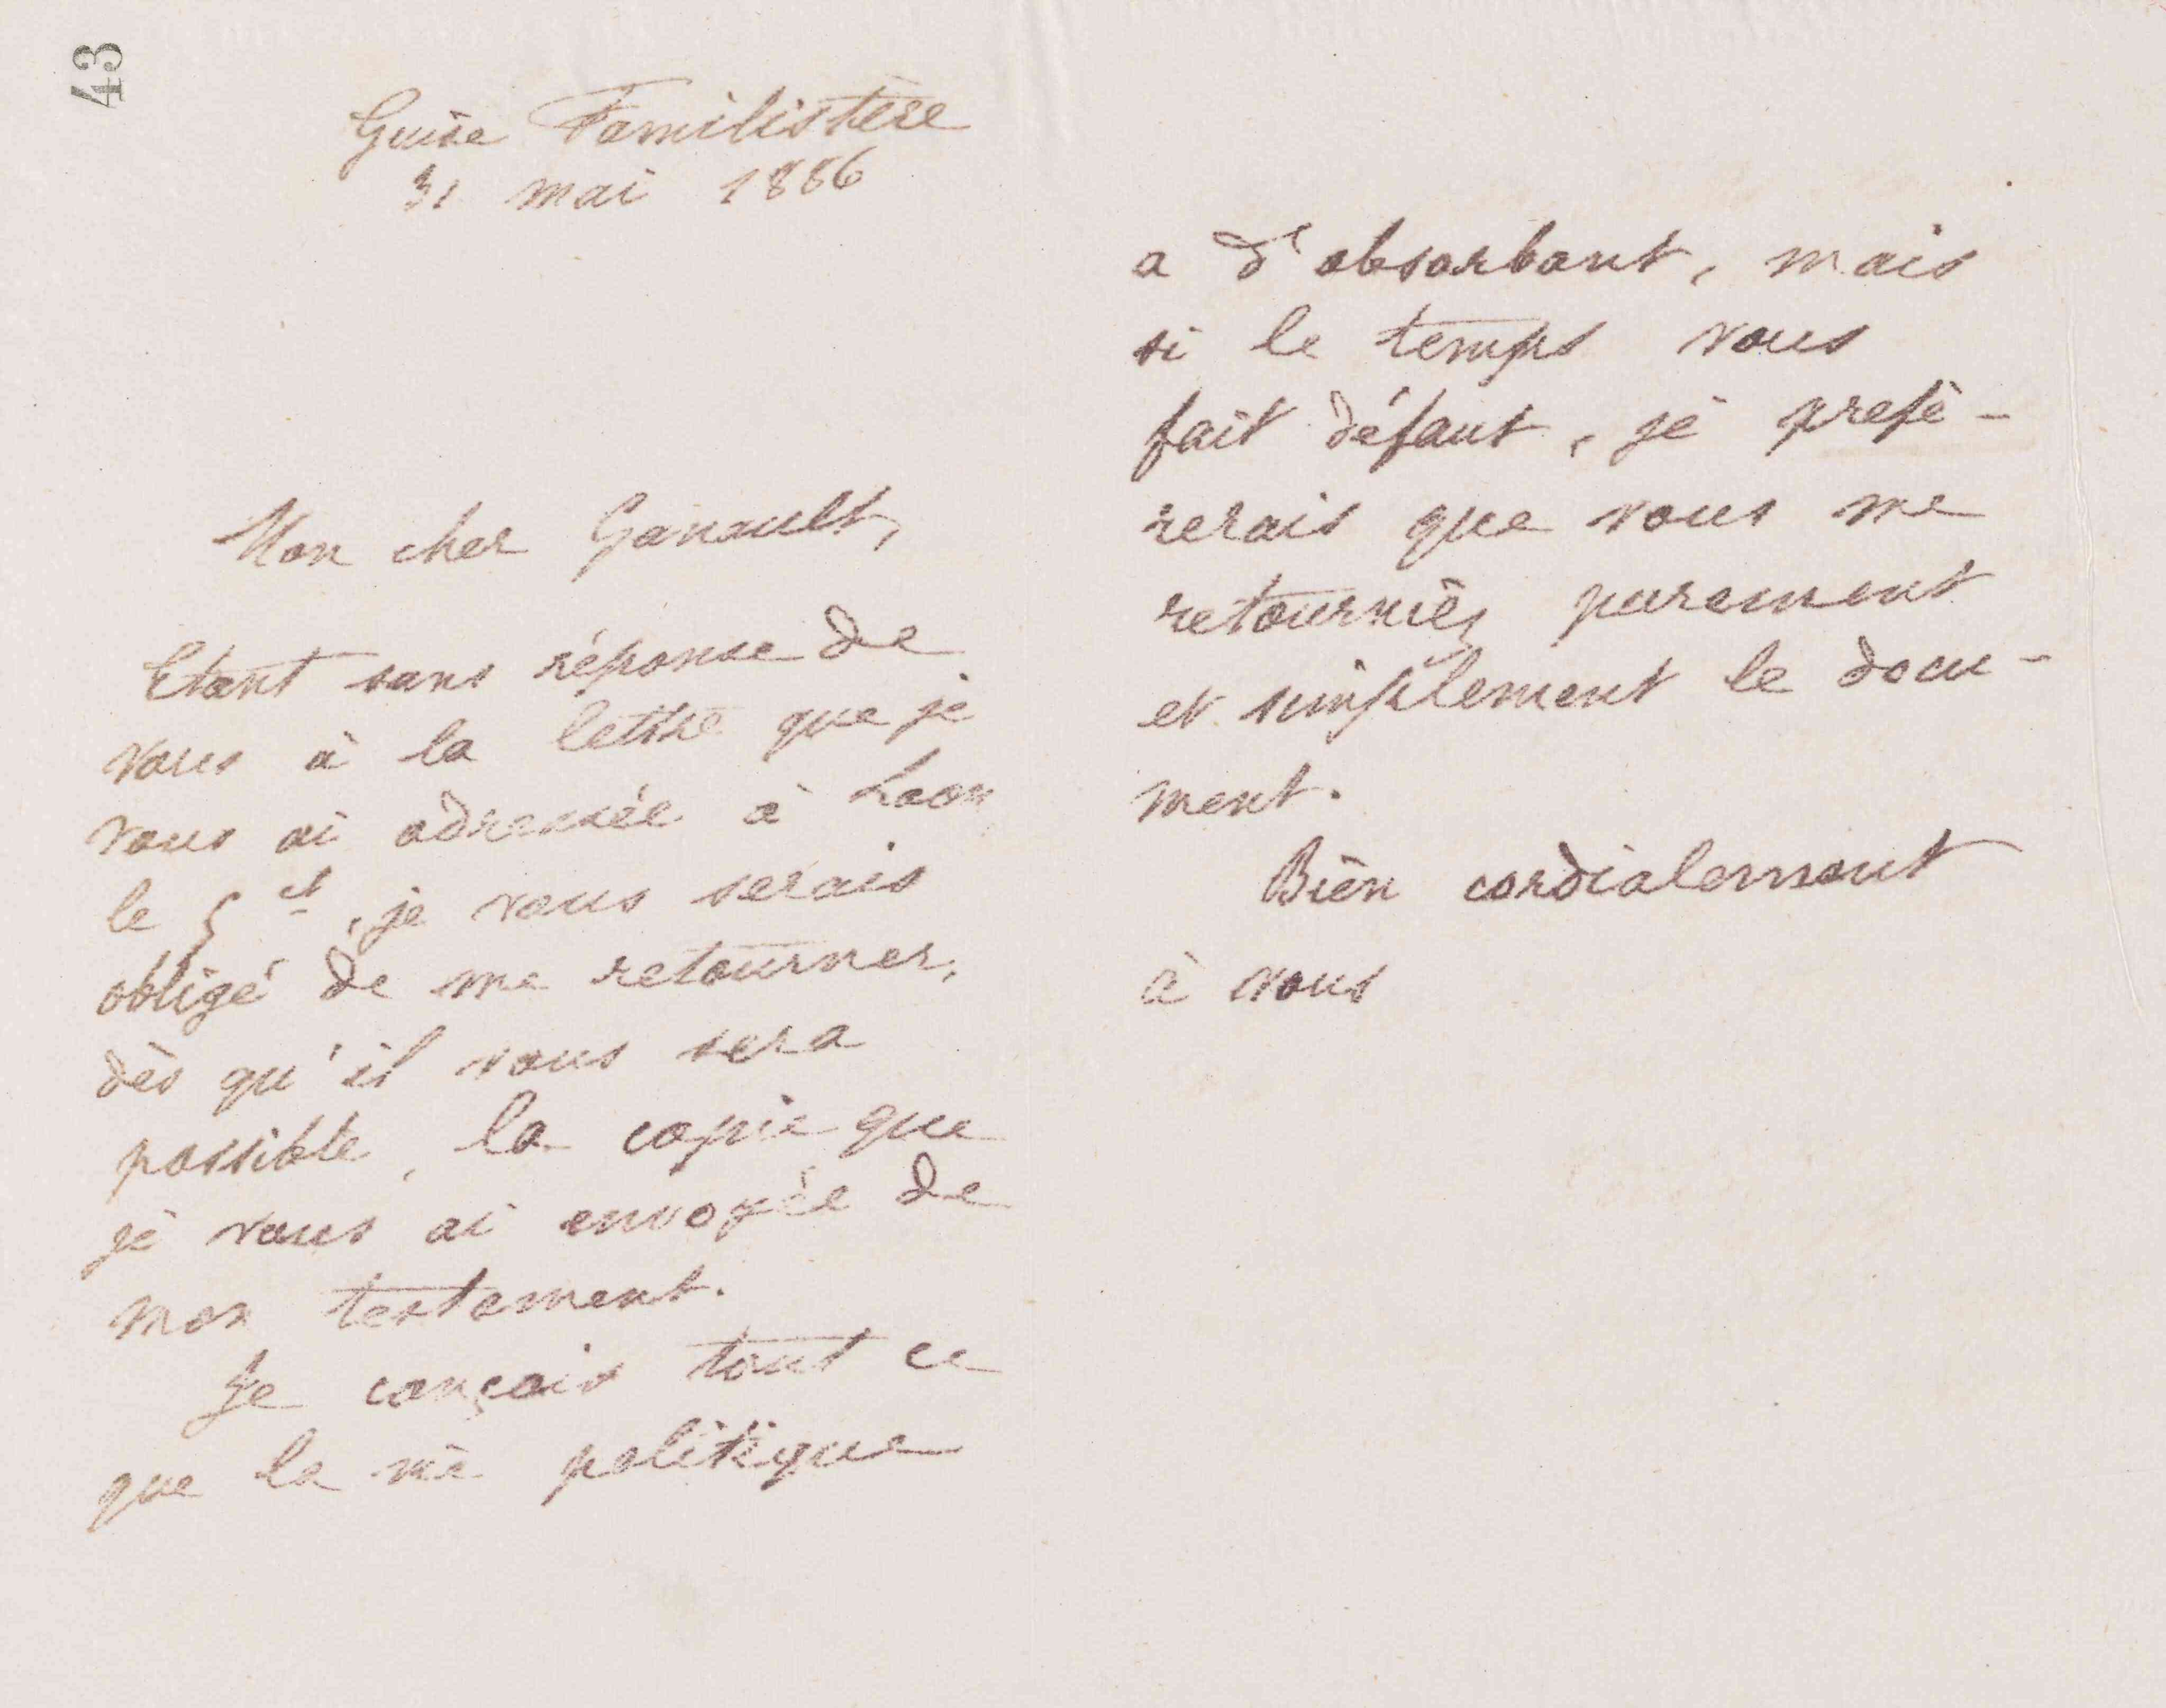 43
Guise Familistère
31 mai 1886
Mon cher Ganault,
Etant sans réponse de
vous à la lettre que je
vous ai adressée à Laon
le 5 ct, je vous serais
obligé de me retourner,
dès qu'il vous sera
possible, la copie que
je vous ai envoyée de
mon testament.
Je conçois tout ce
que la vie politique
a d'absorbant, mais
si le temps vous
fait défaut, je préfè-
rerais que vous me
retourniez purement
et simplement le docu-
ment.
Bien cordialement
à vous